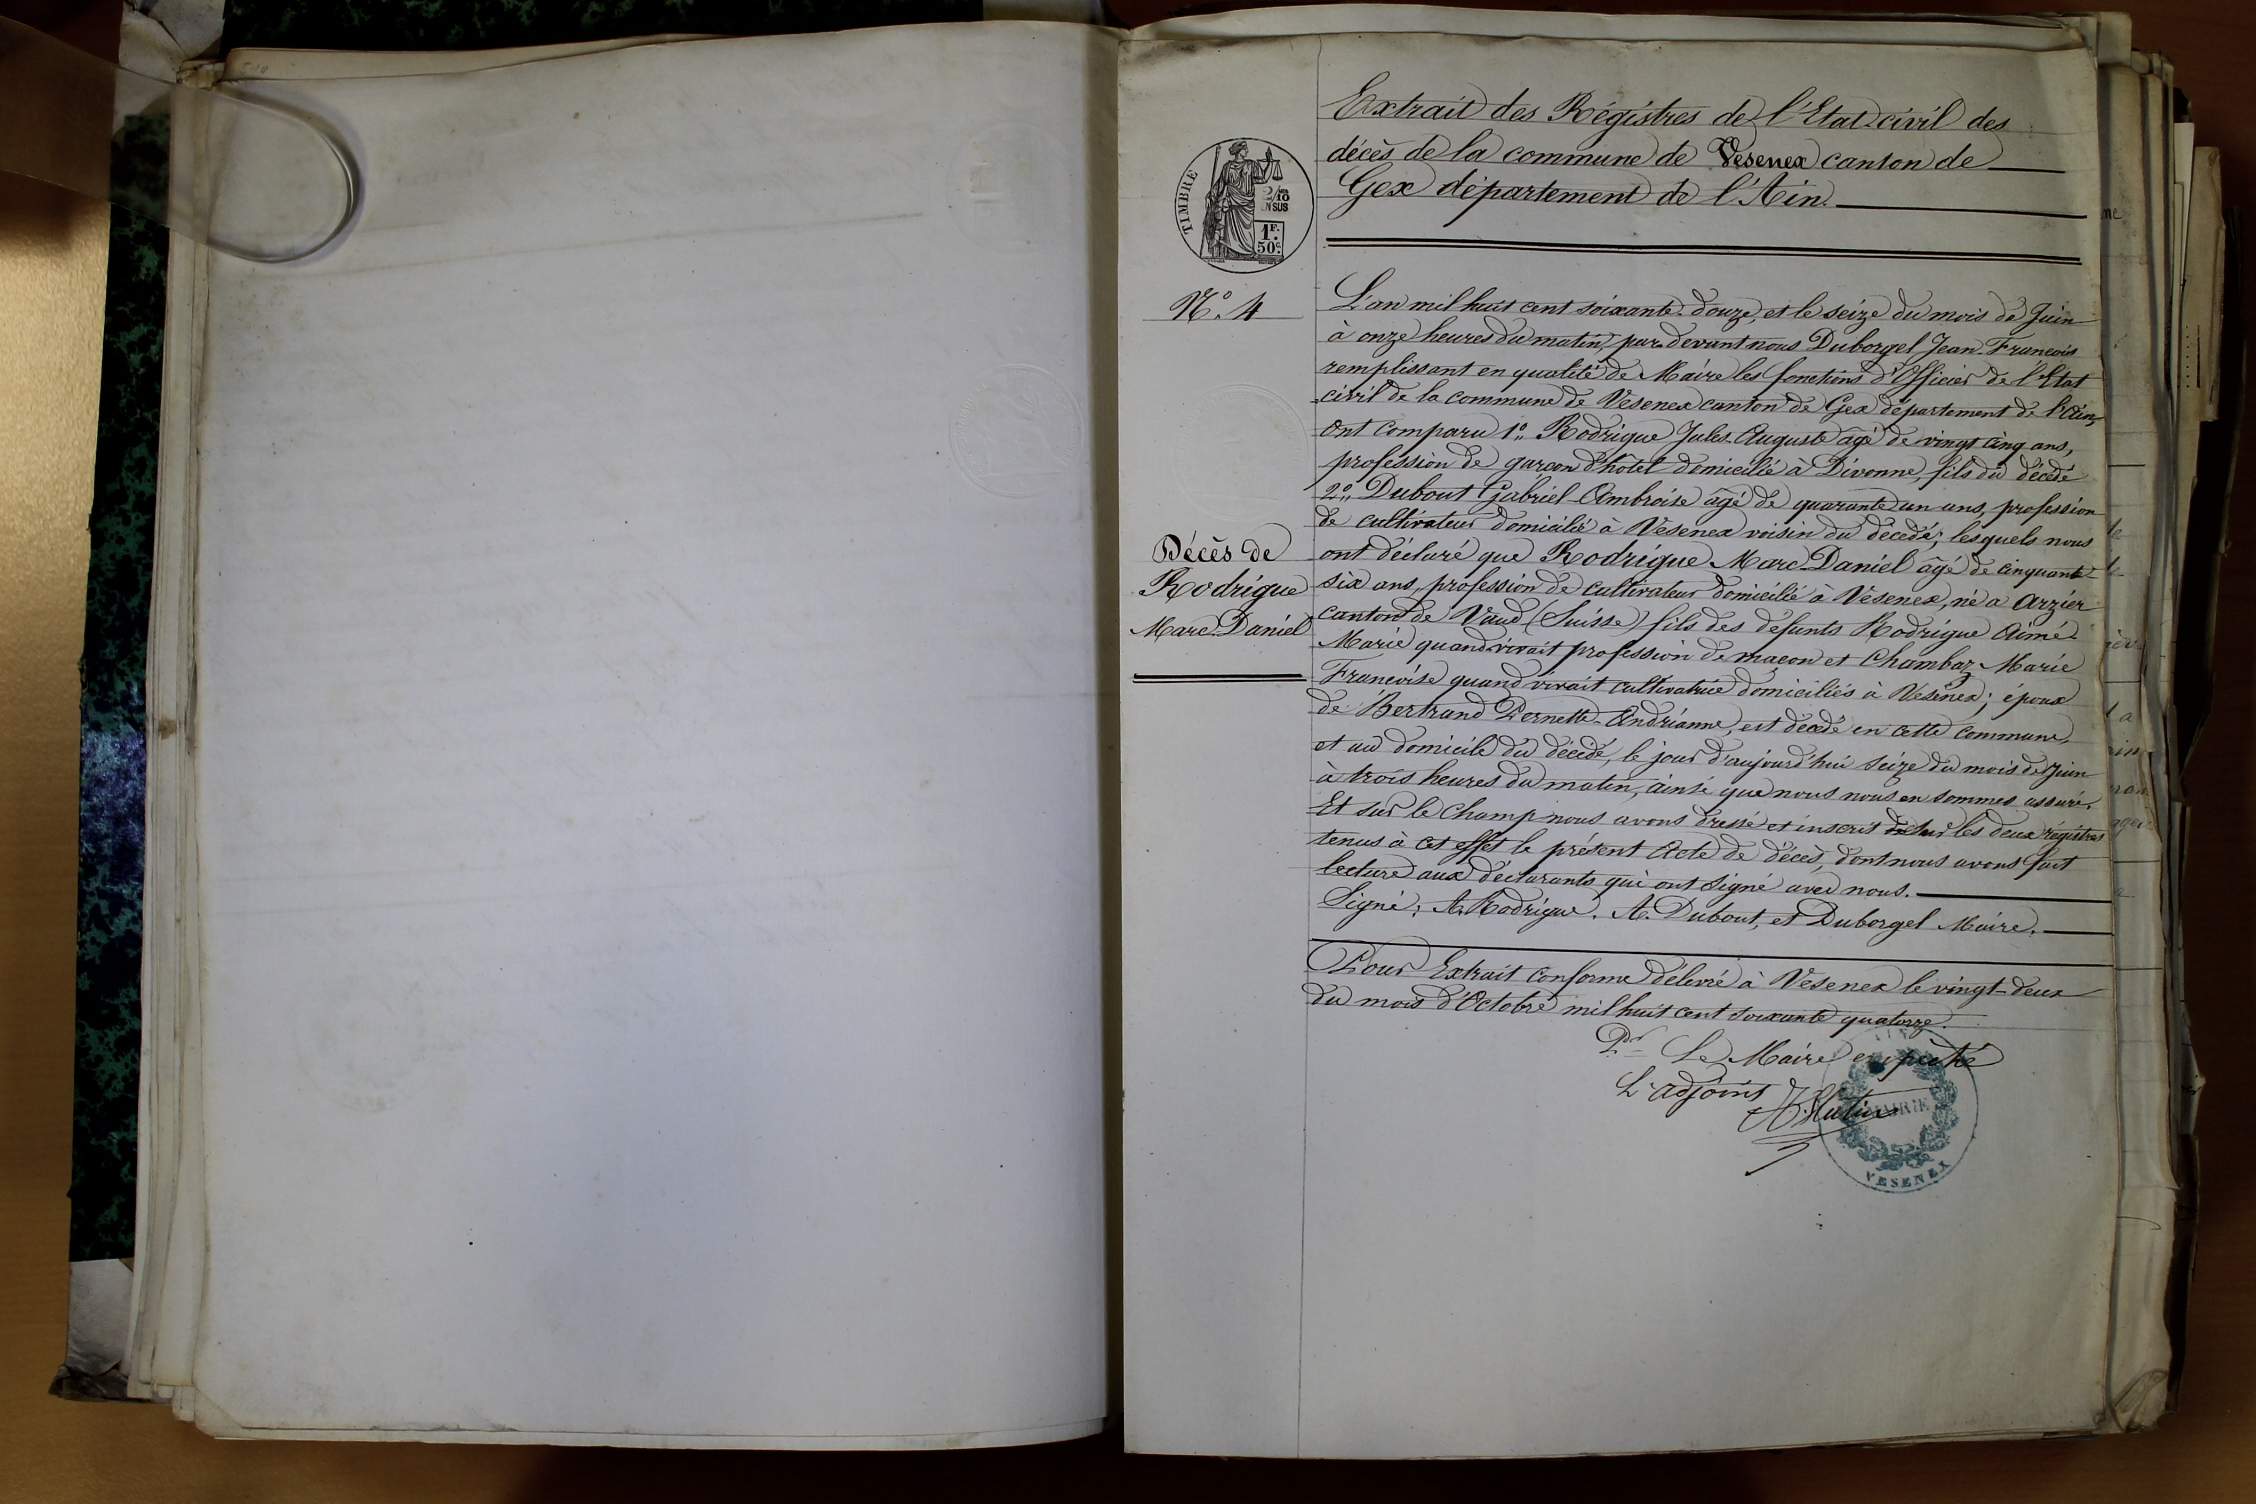 Extrait des Régistres de l'Etat-civil des
décès de la commune de Vesenex canton de
Gex département de l'Ain.
TIMBRE
2/10
EN SUS
1F.
50c.
N°. 4
L'an mil huit cent soixante-douze, et le seize du mois de Juin
à onze heures du matin, par devant nous Duborgel Jean-François
remplissant en qualité de Maire les fonctions d'Officier de l'Etat
civil de la commune de Vesenex canton de Gex département de l'Ain,
Ont comparu 1° Rodrigue Jules-Auguste âgé de vingt cinq ans,
profession de garçon d'hôtel domicilié à Divonne, fils du décédé
2° Dubout Gabriel-Ambroise âgé de quarante un ans, profession
de cultivateur domicilié à Vesenex voisin du décedé; lesquels nous
ont déclaré que Rodrigue Marc-Daniel âgé de cinquante-
six ans, profession de cultivateur domicilié à Vesenex, né a Arzier
canton de Vaud (Suisse) fils des défunts Rodrigue Aimé-
Marie quand vivait profession de maçon et Chambaz Marie
Françoise quand vivait cultivatrice domiciliés à Vesenex; époux
de Bertrand Pernette-Andrianne, est décédé en cette commune,
et au domicile du décédé, le jour d'aujourd'hui seize du mois de Juin
à trois heures du matin, ainsi que nous nous en sommes assuré.
Et sur le champ nous avons dressé et inscrit sur les deux régistres
tenus à cet effet le présent Acte de décès, dont nous avons fait
lecture aux déclarants qui ont signé avec nous.
Signé: A. Rodrigue. A. Dubout, et Duborgel Maire.
Décès de
Rodrigue
Marc-Daniel
Pour Extrait conforme délivré à Vesenex le vingt-deux
du mois d'Octobre mil huit cent soixante quatorze.
Pr Le Maire empêché
L'adjoint
MAIRIE
VESENEX